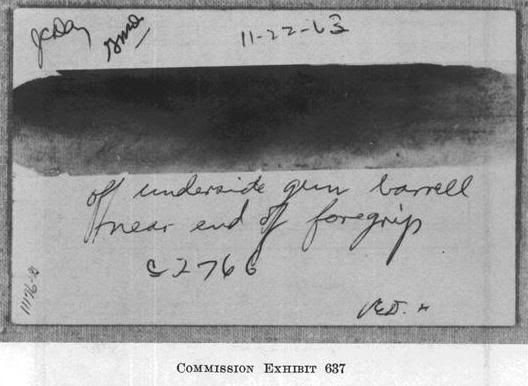 JCDay
11-22-63
off underside gun barrell
near end of foregrip
C 2766
COMMISSION EXHIBIT 637